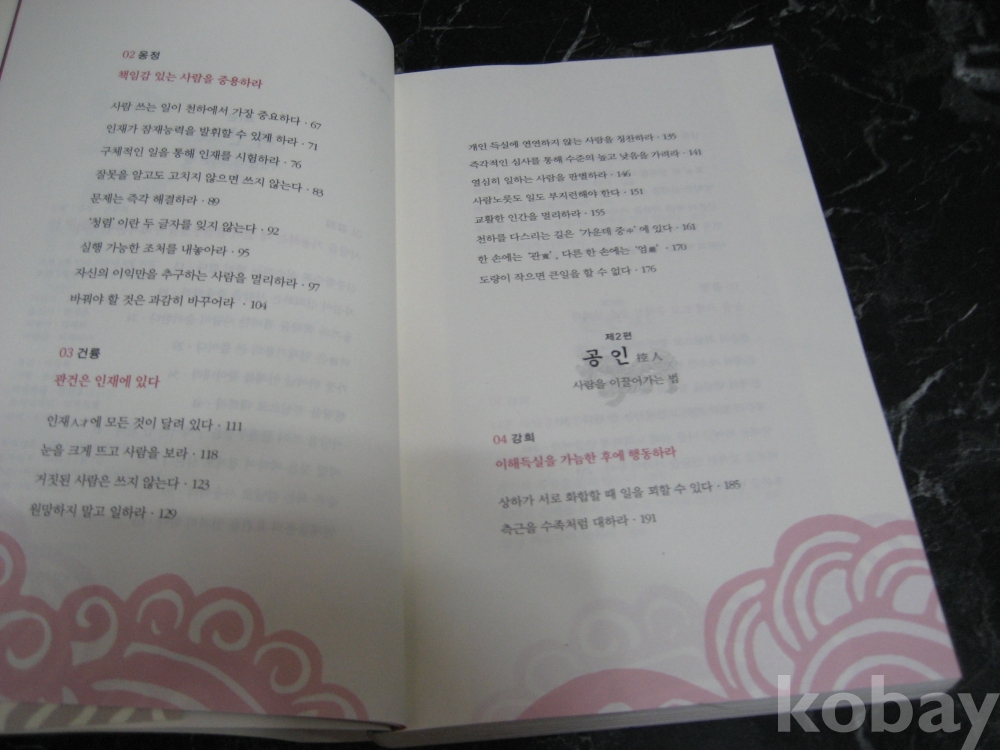 02 옹정
책임감 있는 사람을 중용하라
사람 쓰는 일이 천하에서 가장 중요하다 · 67
인재가 잠재능력을 발휘할 수 있게 하라 · 71
구체적인 일을 통해 인재를 시험하라 · 76
잘못을 알고도 고치지 않으면 쓰지 않는다 · 83
문제는 즉각 해결하라 · 89
'청렴'이란 두 글자를 잊지 않는다 · 92
실행 가능한 조처를 내놓아라 · 95
자신의 이익만을 추구하는 사람을 멀리하라 · 97
바꿔야 할 것은 과감히 바꾸어라 · 104
03 건륭
관건은 인재에 있다
인재人才에 모든 것이 달려 있다 · 111
눈을 크게 뜨고 사람을 보라 · 118
거짓된 사람은 쓰지 않는다 · 123
원망하지 말고 일하라 · 129
개인 득실에 연연하지 않는 사람을 칭찬하라 · 135
즉각적인 심사를 통해 수준의 높고 낮음을 가려라 · 141
열심히 일하는 사람을 판별하라 · 146
사람노릇도 일도 부지런해야 한다 · 151
교활한 인간을 멀리하라 · 155
천하를 다스리는 길은 '가운데 중中'에 있다 · 161
한 손에는 '관寬', 다른 한 손에는 '엄嚴' · 170
도량이 작으면 큰일을 할 수 없다 · 176
제2편
공인 控人
사람을 이끌어가는 법
04 강희
이해득실을 가늠한 후에 행동하라
상하가 서로 화합할 때 일을 꾀할 수 있다 · 185
측근을 수족처럼 대하라 · 191
kobay